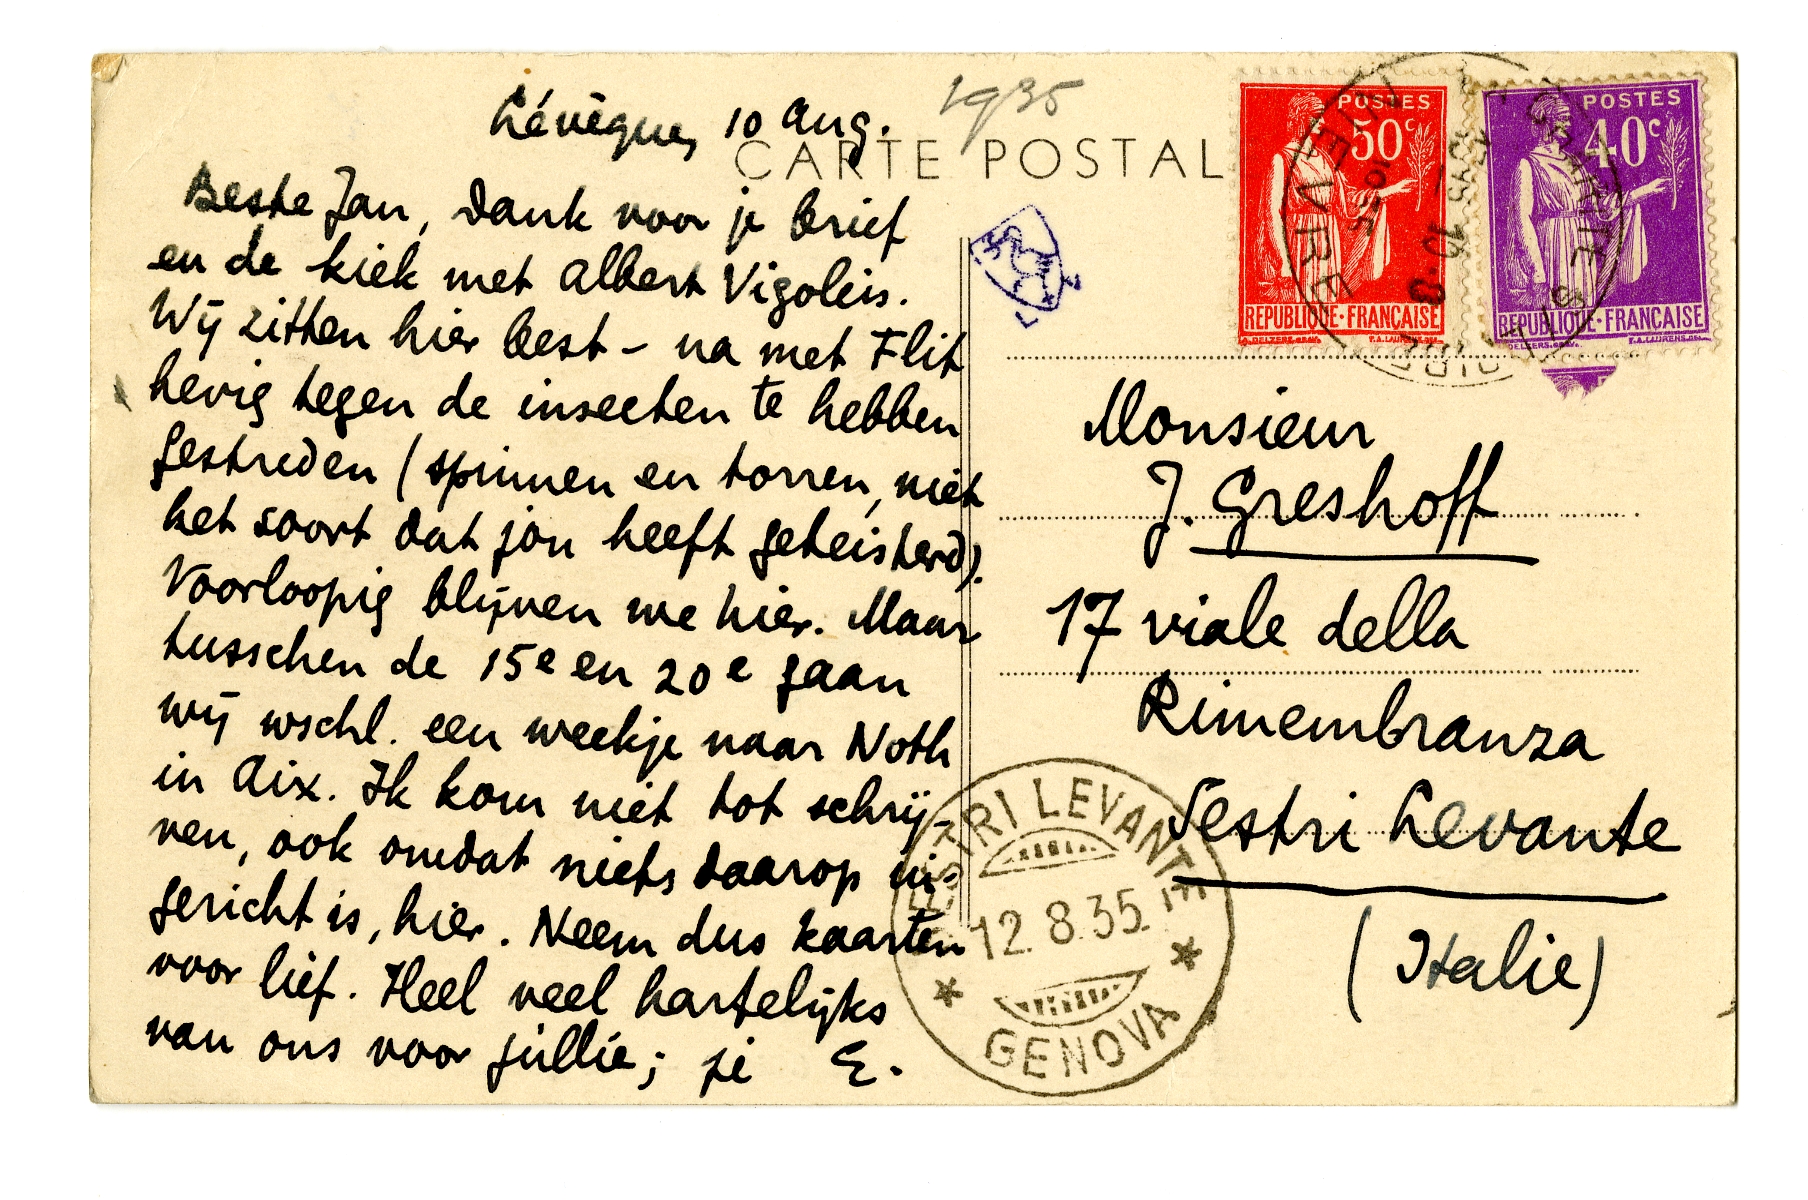 Lévêque, 10 Aug. 1935
CARTE POSTAL
Beste Jan, Dank voor je brief
en de kiek met Albert Vigoleis.
Wij zitten hier best – na met Flit
hevig tegen de insecten te hebben
gestreden (spinnen en torren, niet
het soort dat jou heeft geteisterd).
Voorloopig blijven we hier. Maar
tusschen de 15e en 20e gaan
wij wschl. een weekje naar Noth
in Aix. Ik kom niet tot schrij-
ven, ook omdat niets daarop in-
gericht is, hier. Neem dus kaarten
voor lief. Heel veel hartelijks
van ons voor jullie; je E.
POSTES
50c
REPUBLIQUE·FRANÇAISE
POSTES
40c
REPUBLIQUE·FRANÇAISE
NIEVRE
Monsieur
J. Greshoff
17 viale della
Rimembranza
Sestri Levante
(Italie)
SESTRI LEVANTE
12.8.35.
GENOVA